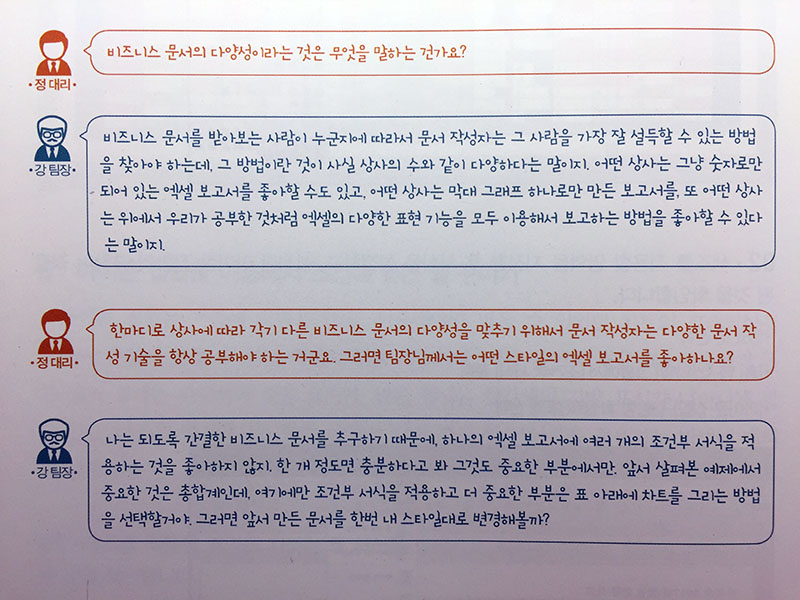 비즈니스 문서의 다양성이라는 것은 무엇을 말하는 건가요?
• 정 대리 •
비즈니스 문서를 받아보는 사람이 누군지에 따라서 문서 작성자는 그 사람을 가장 잘 설득할 수 있는 방법
을 찾아야 하는데, 그 방법이란 것이 사실 상사의 수와 같이 다양하다는 말이지. 어떤 상사는 그냥 숫자로만
• 강 팀장 •
되어 있는 엑셀 보고서를 좋아할 수도 있고, 어떤 상사는 막대 그래프 하나로만 만든 보고서를, 또 어떤 상사
는 위에서 우리가 공부한 것처럼 엑셀의 다양한 표현 기능을 모두 이용해서 보고하는 방법을 좋아할 수 있다
는 말이지.
한마디로 상사에 따라 각기 다른 비즈니스 문서의 다양성을 맞추기 위해서 문서 작성자는 다양한 문서 작
성 기술을 항상 공부해야 하는 거군요. 그러면 팀장님께서는 어떤 스타일의 엑셀 보고서를 좋아하나요?
• 정 대리 •
나는 되도록 간결한 비즈니스 문서를 추구하기 때문에, 하나의 엑셀 보고서에 여러 개의 조건부 서식을 적
용하는 것을 좋아하지 않지. 한 개 정도면 충분하다고 봐 그것도 중요한 부분에서만. 앞서 살펴본 예제에서
• 강 팀장 •
중요한 것은 총합계인데, 여기에만 조건부 서식을 적용하고 더 중요한 부분은 표 아래에 차트를 그리는 방법
을 선택할거야. 그러면 앞서 만든 문서를 한번 내 스타일대로 변경해볼까?